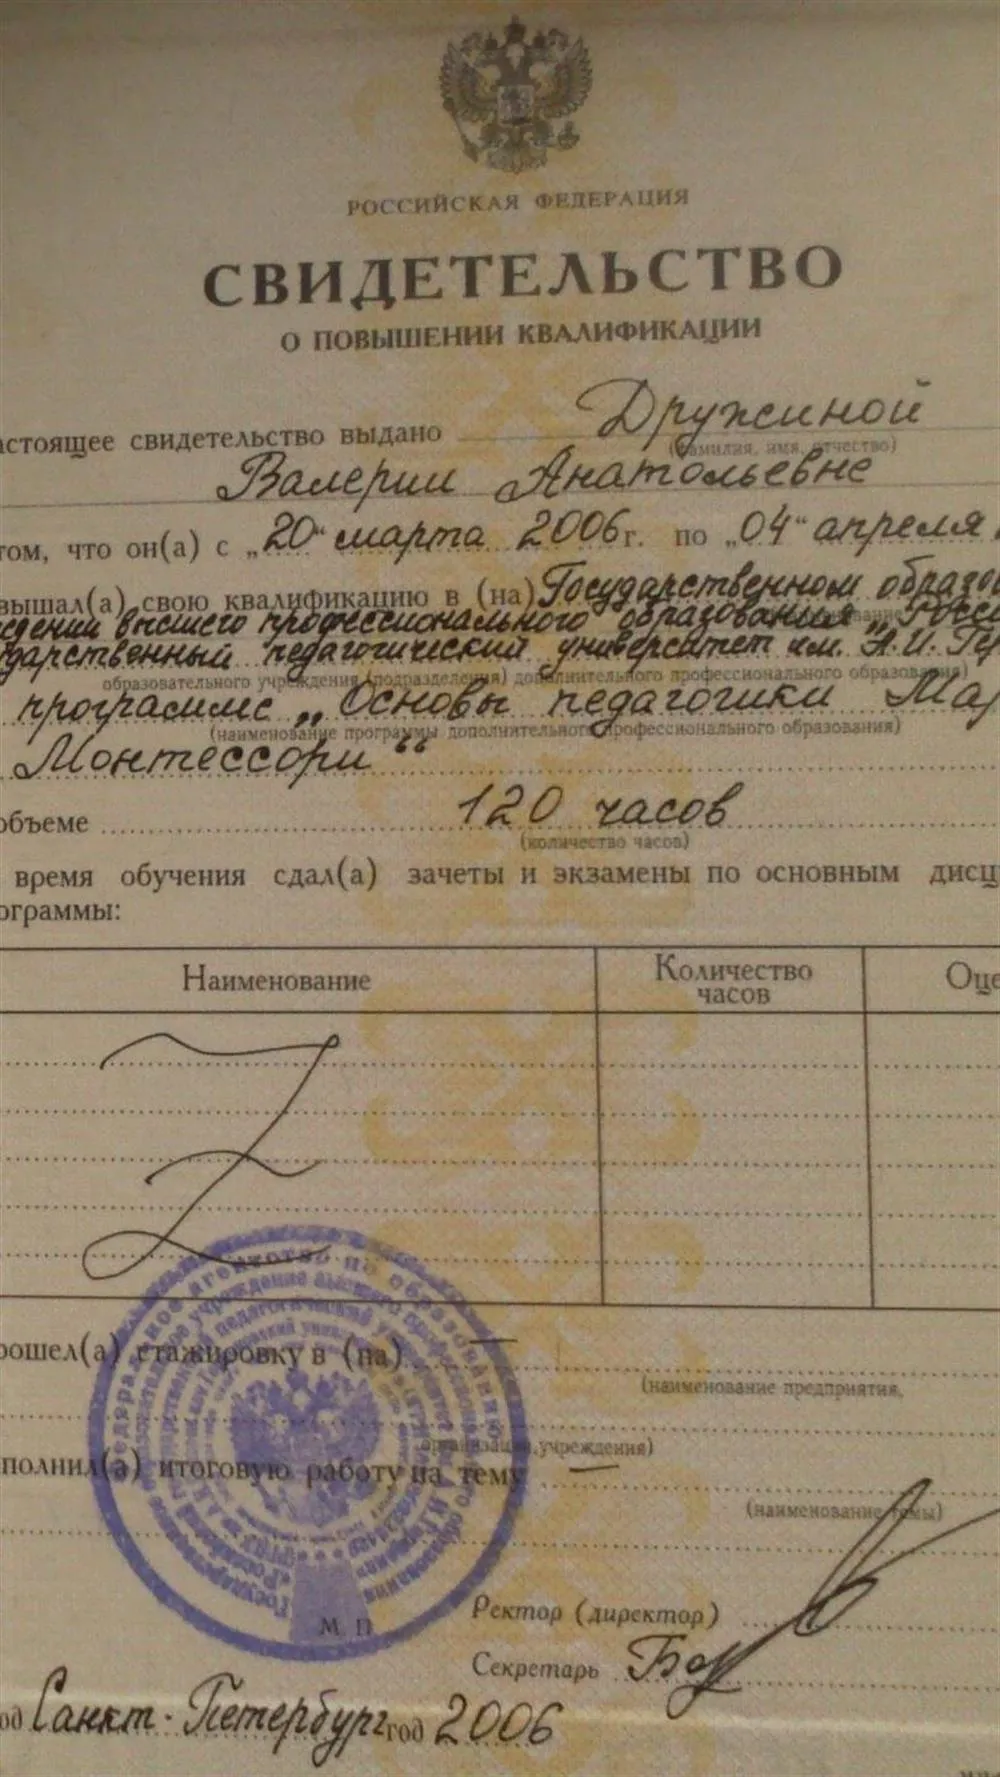 РОССИЙСКАЯ ФЕДЕРАЦИЯ
СВИДЕТЕЛЬСТВО
О ПОВЫШЕНИИ КВАЛИФИКАЦИИ
астоящее свидетельство выдано Дружиной
(фамилия, имя, отчество)
Валерии Анатольевне
том, что он(а) с „20“ марта 2006 г. по „04“ апреля
вышал(а) свою квалификацию в (на) Государственном образо
ждении высшего профессионального образования „Росси
ударственный педагогический университет им. А.И. Гер
образовательного учреждения (подразделения) дополнительного профессионального образования)
программе „Основы педагогики Мар
(наименование программы дополнительного профессионального образования)
Монтессори“
объеме 120 часов
(количество часов)
время обучения сдал(а) зачеты и экзамены по основным дисц
ограммы:
Наименование Количество часов Оце
рошел(а) стажировку в (на) —
(наименование предприятия,
организации, учреждения)
полнил(а) итоговую работу на тему —
(наименование темы)
Ректор (директор)
М П
Секретарь
од Санкт-Петербург год 2006